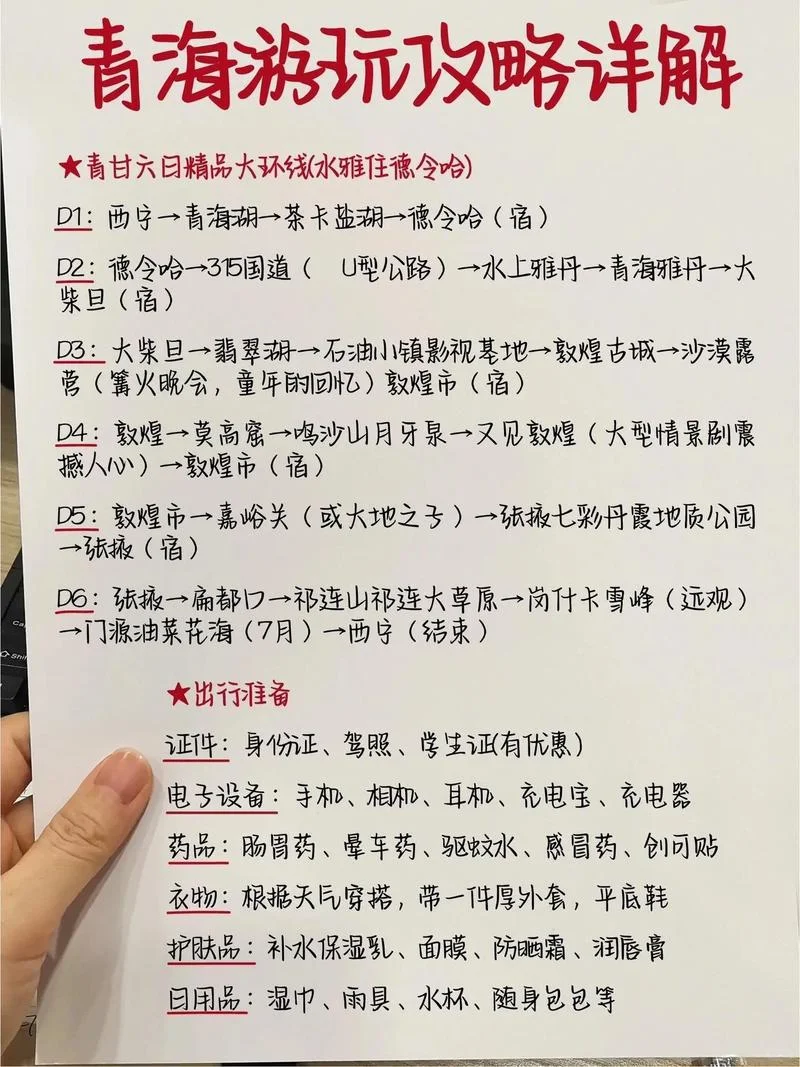 青海游玩攻略详解
★青甘六日精品大环线(水雅住德令哈)
D1：西宁→青海湖→茶卡盐湖→德令哈（宿）
D2：德令哈→315国道（ U型公路）→水上雅丹→青海雅丹→大
柴旦（宿）
D3：大柴旦→翡翠湖→石油小镇影视基地→敦煌古城→沙漠露
营（篝火晚会，童年的回忆）敦煌市（宿）
D4：敦煌→莫高窟→鸣沙山月牙泉→又见敦煌（大型情景剧震
撼人心）→敦煌市（宿）
D5：敦煌市→嘉峪关（或大地之子）→张掖七彩丹霞地质公园
→张掖（宿）
D6：张掖→扁都口→祁连山祁连大草原→岗什卡雪峰（远观）
→门源油菜花海（7月）→西宁（结束）
★出行准备
证件：身份证、驾照、学生证(有优惠）
电子设备：手机、相机、耳机、充电宝、充电器
药品：肠胃药、晕车药、驱蚊水、感冒药、创可贴
衣物：根据天气穿搭，带一件厚外套，平底鞋
护肤品：补水保湿乳、面膜、防晒霜、润唇膏
日用品：湿巾、雨具、水杯、随身包包等
Shift